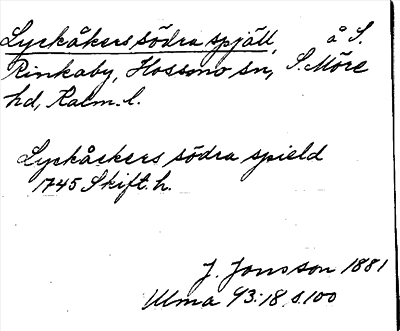 Lyckåkers södra spjäll, å S.
Rinkaby, Hossmo sn, S. Möre
hd, Kalm. l.
Lyckåckers södra spield
1745 Skift. h.
J. Jonsson 1881
Ulma 93:18, s. 100